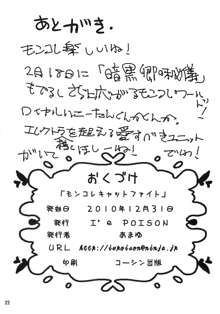 あとがき.
モンコレ楽しいね!
2月18日に「暗黒郷の秘儀」
もでるしさらに広がるモンコレワールド!
ロイヤルハニーたんくんかくんか。
エレクトラを超える愛すべきユニット
がいて
ほしーね!
でわ!
おくづけ
「モンコレキャットファイト」
発行日 2010年12月31日
発行 I'm POISON
発行者 あまゆ
URL
印刷 コーシン出版
22